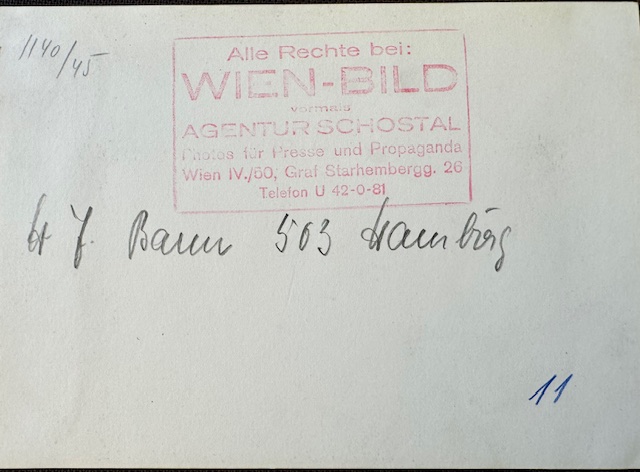 1140/45
Alle Rechte bei:
WIEN-BILD
vormals
AGENTUR SCHOSTAL
Photos für Presse und Propaganda
Wien IV./50, Graf Starhembergg. 26
Telefon U 42-0-81
503 Hamburg
11